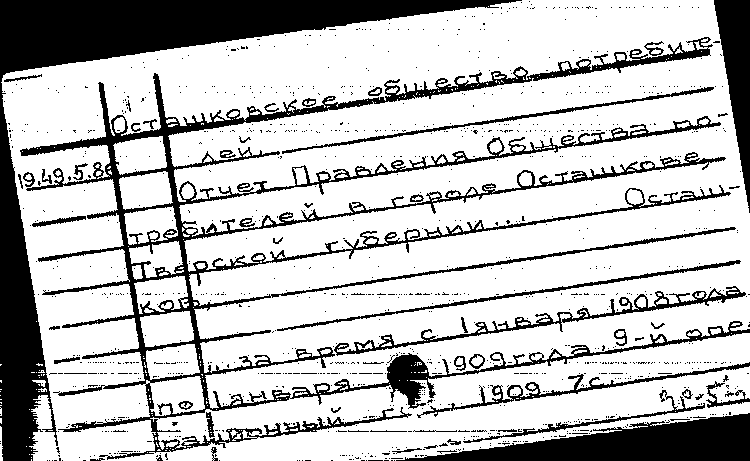 Осташковское общество потребите-
лей.
19.49.5.86
Отчет Правления Общества по-
требителей в городе Осташкове,
Тверской губернии... Осташ-
ков,
... за время с 1 января 1908 года
по 1 января 1909 года. 9-й опе-
рационный год. 1909. 7с.